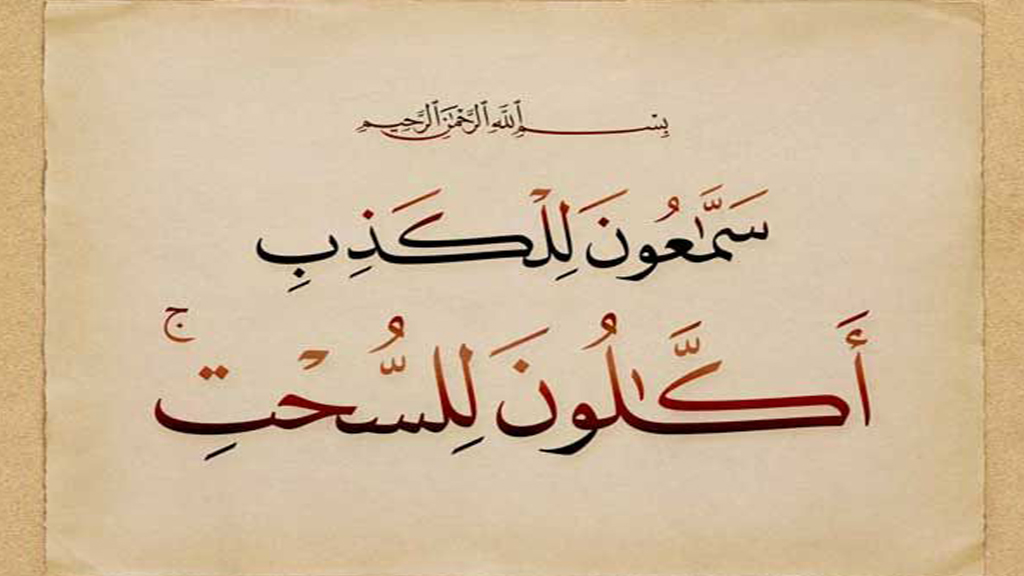 بِسْمِ ٱللَّهِ ٱلرَّحْمَٰنِ ٱلرَّحِيمِ
سَمَّٰعُونَ لِلْكَذِبِ
أَكَّٰلُونَ لِلسُّحْتِ ۚ